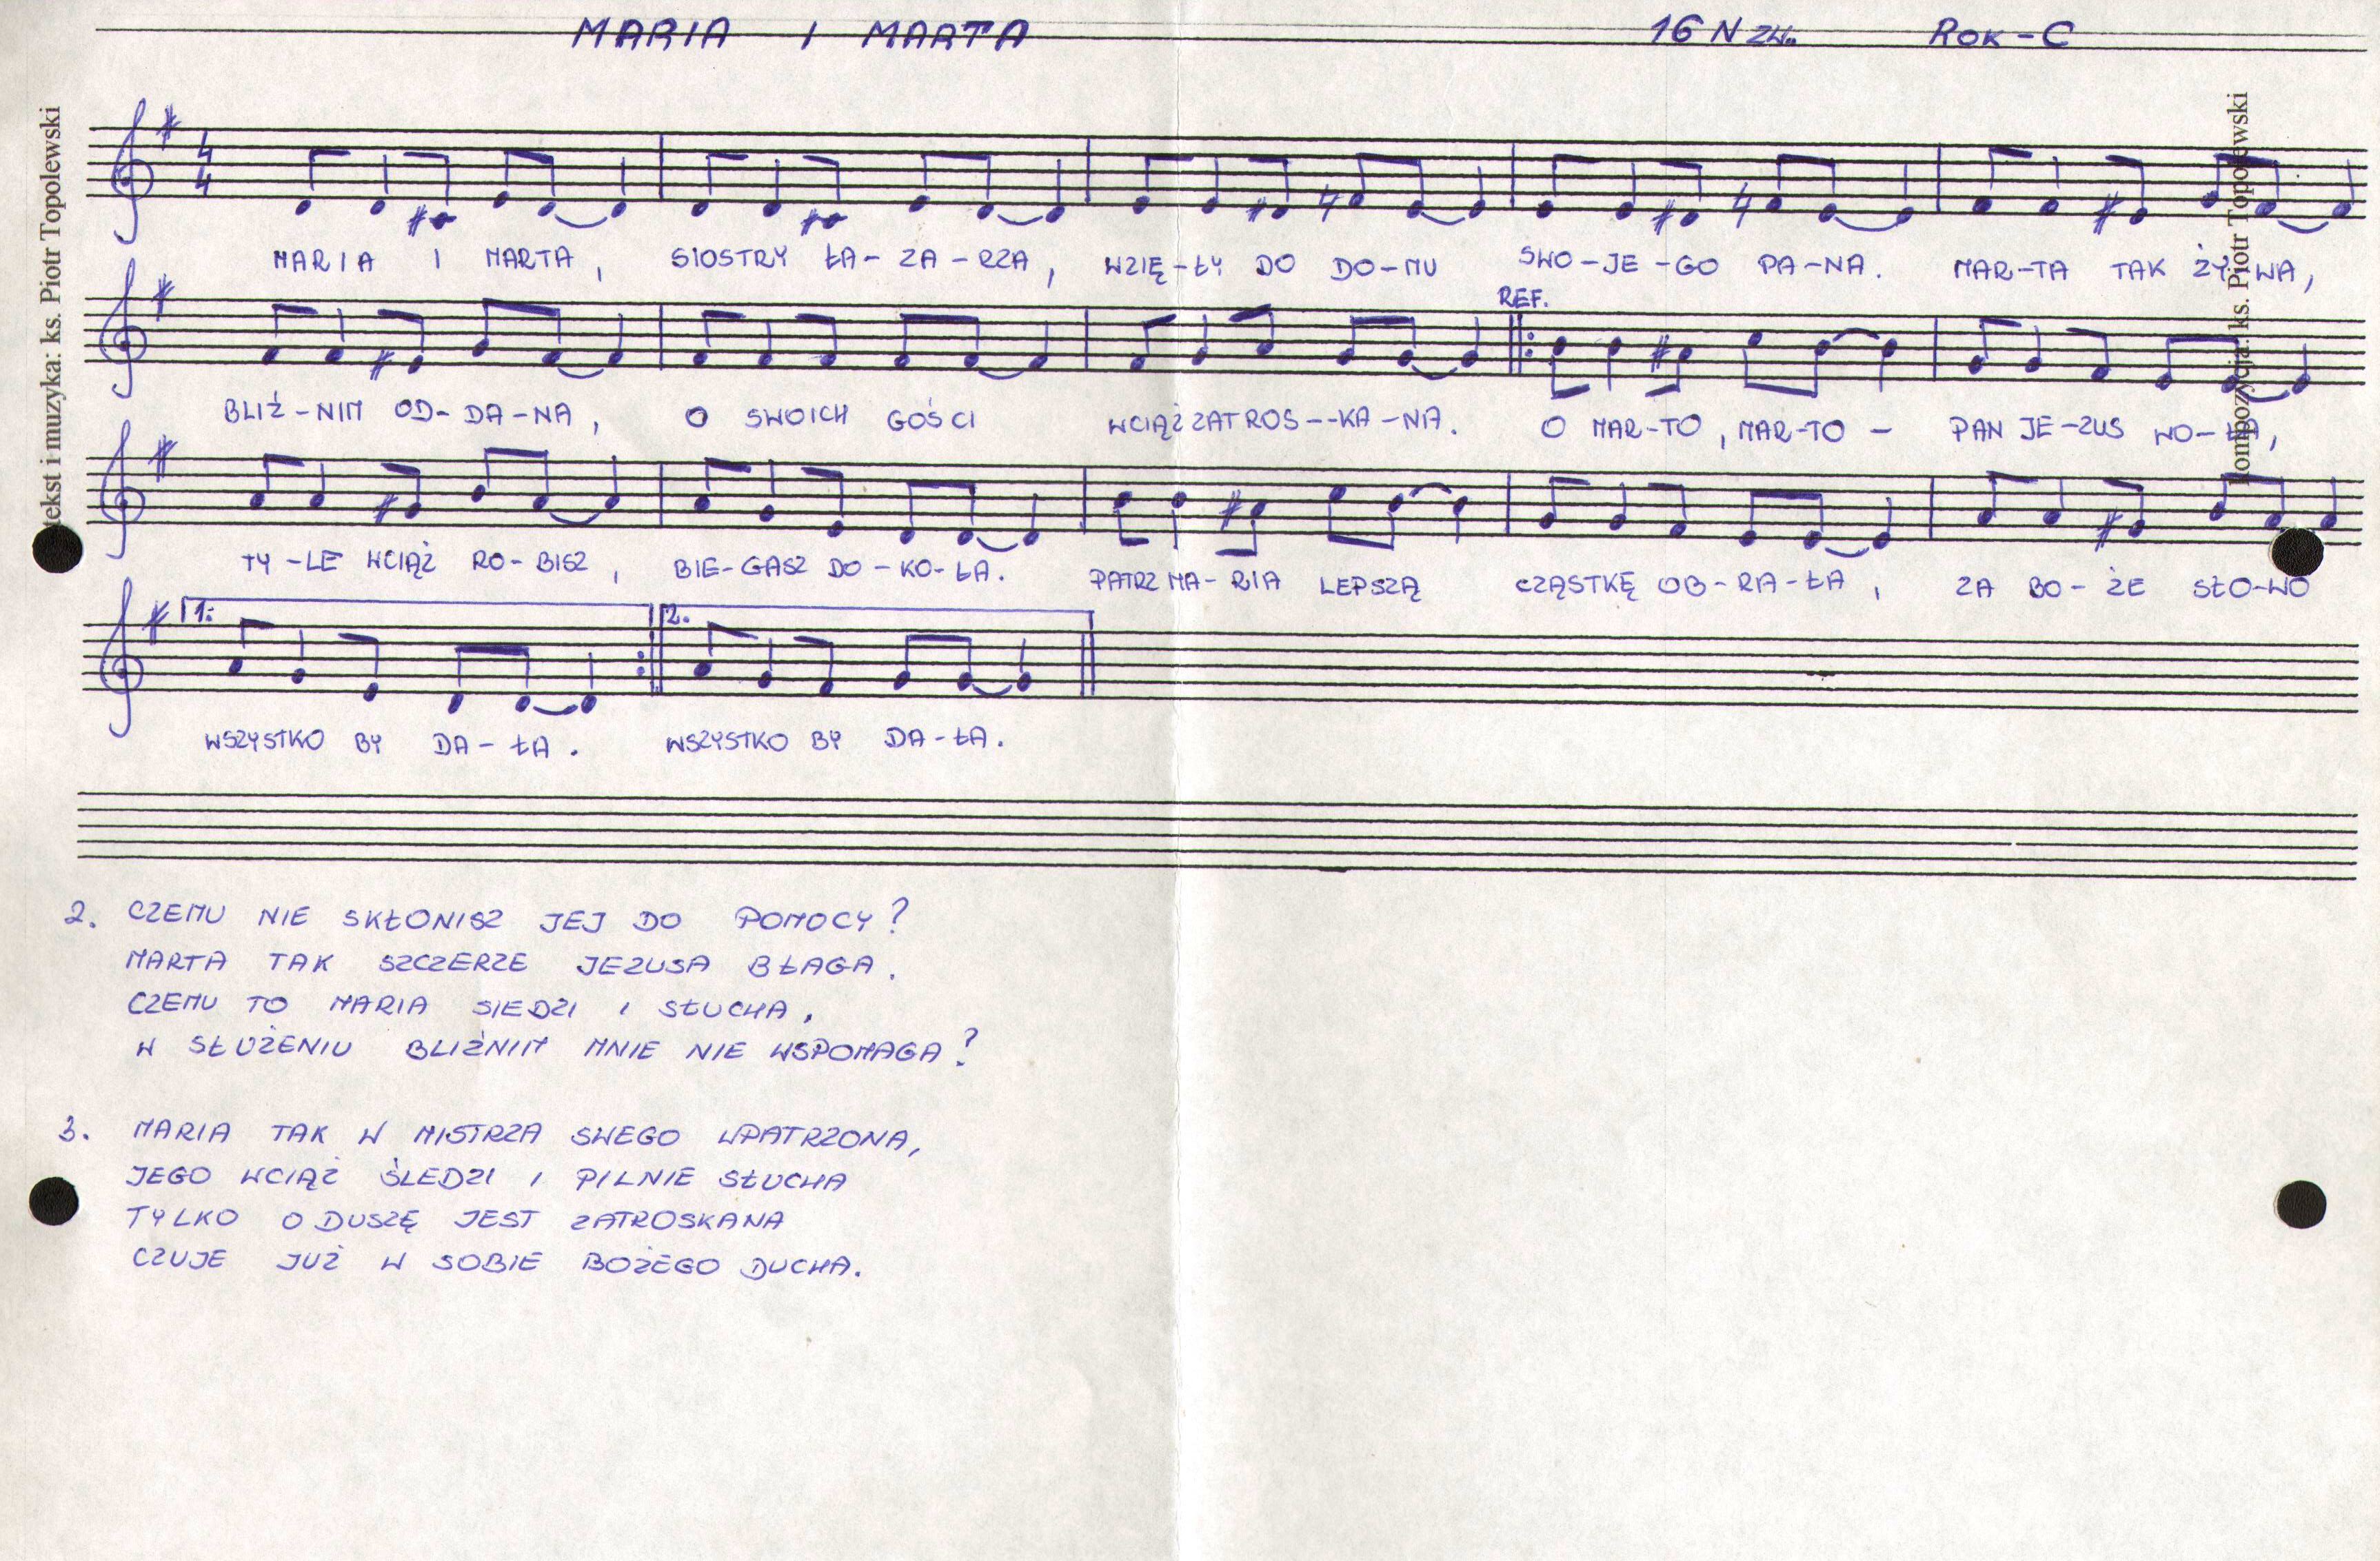 MARIA I MARTA 16 N ZW. ROK - C
tekst i muzyka: ks. Piotr Topolewski
Kompozycja: ks. Piotr Topolewski
4 4
MARIA I MARTA, SIOSTRY ŁA-ZA-RZA, WZIĘ-ŁY DO DO-MU SWO-JE-GO PA-NA. MAR-TA TAK ŻY-WA,
REF.
BLIŹ-NIM OD-DA-NA, O SWOICH GOŚCI WCIĄŻ ZATROS--KA-NA. O MAR-TO, MAR-TO - PAN JE-ZUS WO-ŁA,
TY-LE WCIĄŻ RO-BISZ, BIE-GASZ DO-KO-ŁA. PATRZ MA-RIA LEPSZĄ CZĄSTKĘ OB-RA-ŁA, ZA BO-ŻE SŁO-WO
1. 2.
WSZYSTKO BY DA-ŁA. WSZYSTKO BY DA-ŁA.
2. CZEMU NIE SKŁONISZ JEJ DO POMOCY?
MARTA TAK SZCZERZE JEZUSA BŁAGA.
CZEMU TO MARIA SIEDZI I SŁUCHA,
W SŁUŻENIU BLIŹNIM MNIE NIE WSPOMAGA?
3. MARIA TAK W MISTRZA SWEGO WPATRZONA,
JEGO WCIĄŻ ŚLEDZI I PILNIE SŁUCHA
TYLKO O DUSZĘ JEST ZATROSKANA
CZUJE JUŻ W SOBIE BOŻEGO DUCHA.